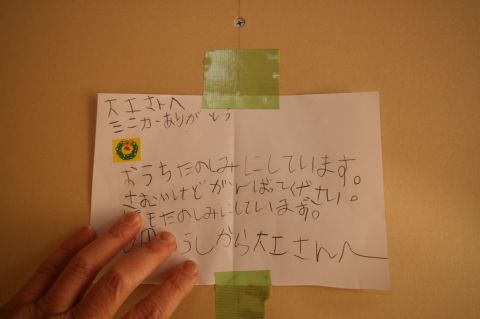 大工さんへ
ミニカーありがとう
おうちたのしみにしています。
さむいけどがんばってください。
またたのしみにしています。
うしから大工さんへ